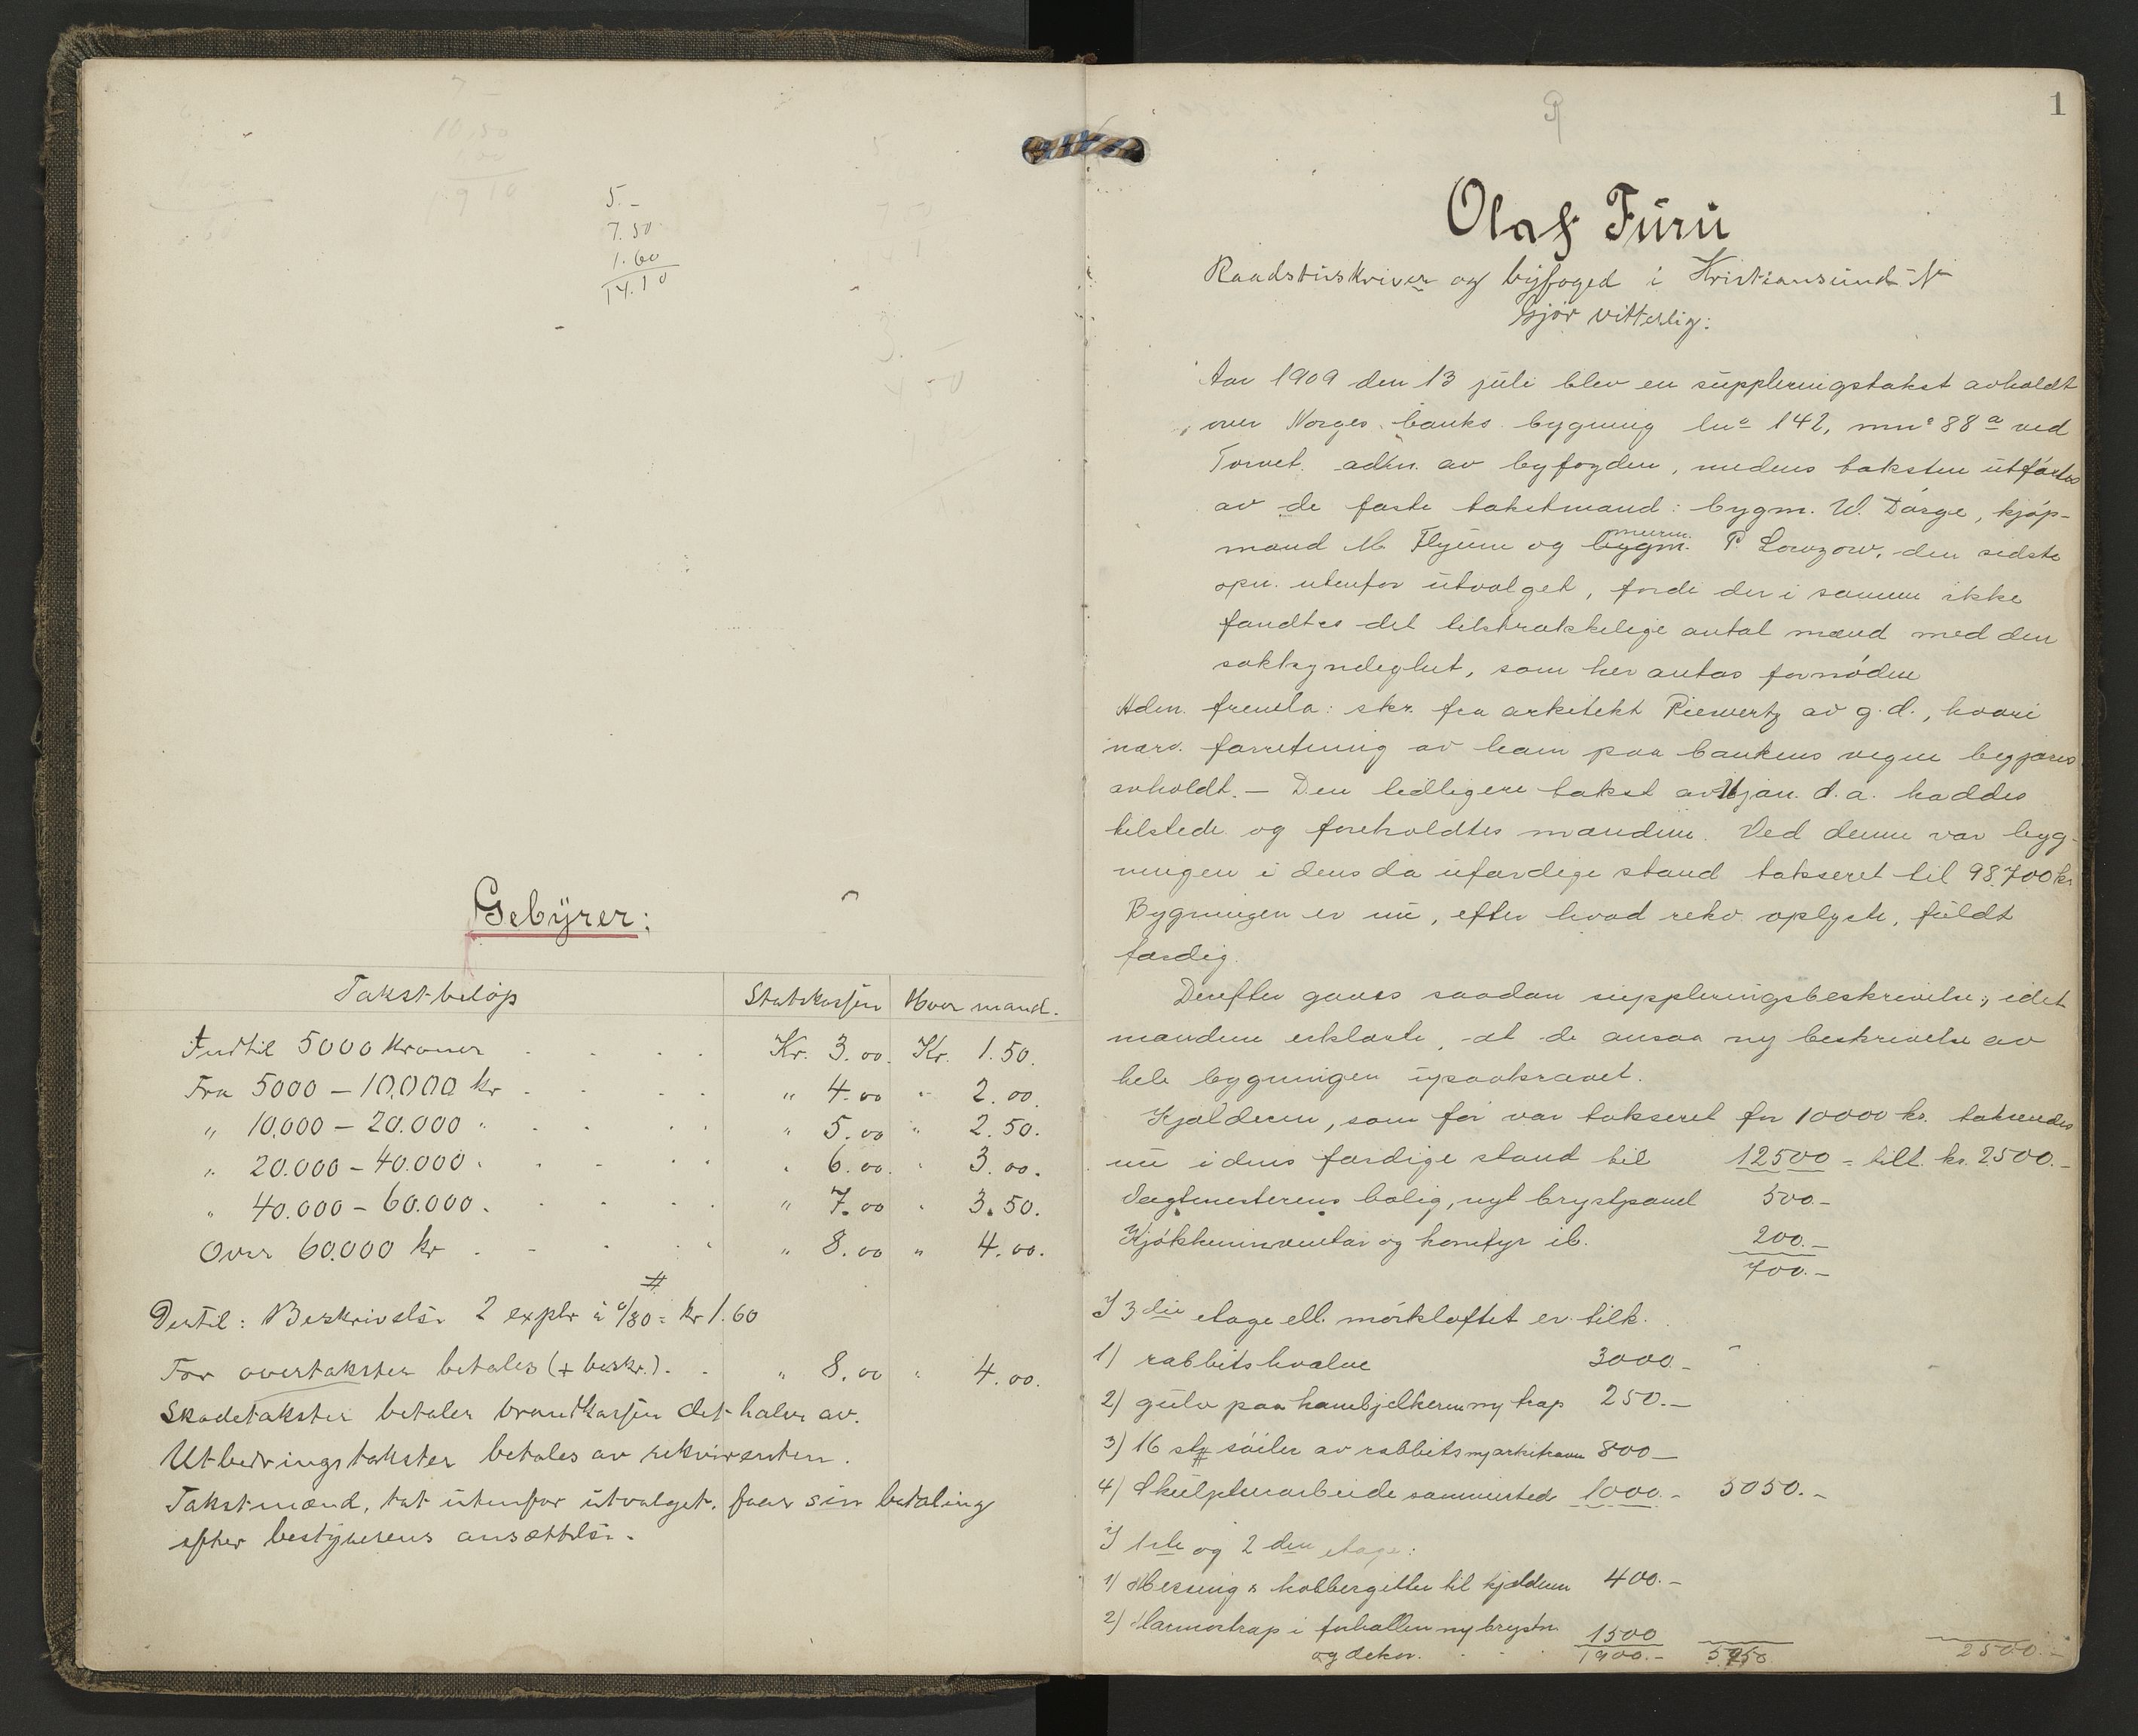 5.-
7.50
1.60
14.10
Gebyrer:
Takst-beløp Statskassen Hver mand.
Indtil 5000 kroner . . . . Kr. 3.00. Kr. 1.50.
Fra 5000 - 10,000 kr . . . . " 4.00 " 2.00.
" 10.000 - 20.000 " . . . . " 5.00 " 2.50.
" 20.000 - 40.000 . . . . " 6.00. " 3.00.
" 40.000 - 60.000 . . . . " 7.00 " 3.50.
Over 60.000 kr . . . . " 8.00 " 4.00.
Dertil: Beskrivelse 2 explr à 0/80 = kr 1.60
For overtakster betales (+ beskr.) . . " 8.00 " 4.00.
Skadetakster betaler brandkassen det halve av.
Utbedringstakster betales av rekvirenten.
Takstmænd, tat utenfor utvalget, faar sin betaling
efter bestyrerens ansættelse.
1
Olaf Furu
Raadstuskriver og byfoged i Kristiansund N
Gjør vitterlig:
Aar 1909 den 13 juli blev en suppleringstakst avholdt
over Norges banks bygning lno 142, mno 88a ved
Torvet. adm. av byfogden, medens taksten utførtes
av de faste takstmænd: bygm. W. Dørge, kjøp-
mand M. Flyum og bygm. murm. P. Lowzow, den sidste
opn. utenfor utvalget, fordi der i samme ikke
fandtes det tilstrækkelige antal mænd med den
sakkyndighet, som her antas fornøden
Adm. fremla: skr. fra arkitekt Riewertz av g.d., hvori
nærv. forretning av ham paa bankens vegne begjæres
avholdt. - Den tidligere takst av jan. d.a. haddes
tilstede og foreholdtes mændene. Ved denne var byg-
ningen i dens da ufærdige stand takseret til 98.700 kr
Bygningen er nu, efter hvad rekv. oplyste, fuldt
færdig.
Derefter gaves saadan suppleringsbeskrivelse, idet
mændene erklærte, at de ansaa ny beskrivelse av
hele bygningen upaakrævet.
Kjælderen, som før var takseret for 10000 kr. takseredes
nu i dens færdige stand til 12500 = till. kr. 2500.-
Vagtmesterens bolig, nyt brystpanel 500.-
Kjøkkeninventar og komfyr ib. 200.-
700.-
I 3die etage ell. mørkloftet er tilk.
1) rabbitshvælv 3000.-
2) gulv paa hanebjelkerne og trap 250.-
3) 16 stk søiler av rabbits og arkitraver 800-
4) Skulpturarbeide sammested 1000.- 5050.-
I 1ste og 2den etage:
1) Messing & kobbergitter til kjælderen 400.-
2) Marmortrap i forhallen og brystn.
og dekor. . . . 1500
1900.- 5750 2500.-